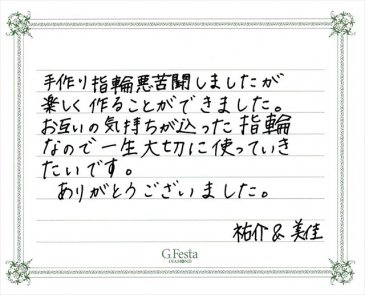 手作り指輪悪苦闘しましたが
楽しく作ることができました。
お互いの気持ちが込った指輪
なので一生大切に使っていき
たいです。
ありがとうございました。
祐介 & 美佳
G.Festa
DIAMOND